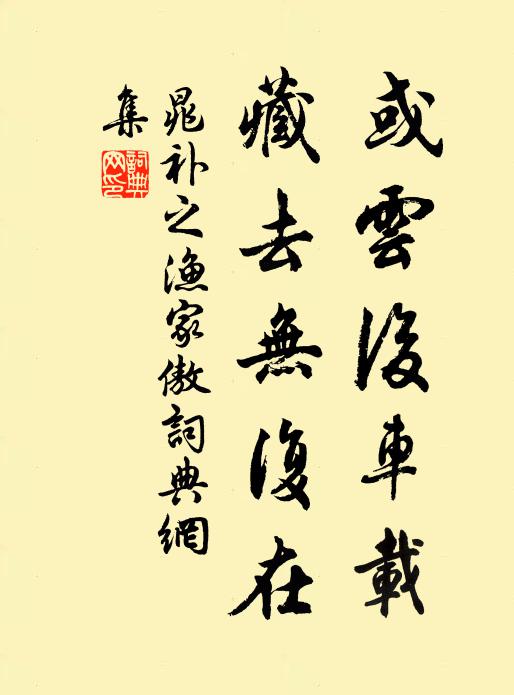 或雲後車載
藏去無復在
晁补之渔家傲詞典網
集
詞典網印